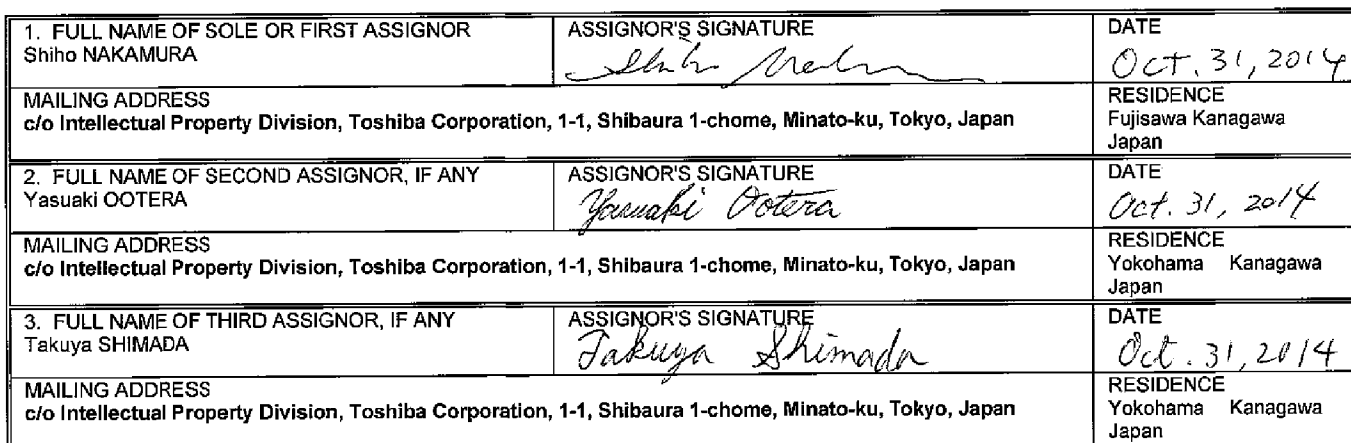 1. FULL NAME OF SOLE OR FIRST ASSIGNOR
Shiho NAKAMURA
ASSIGNOR'S SIGNATURE
DATE
Oct. 31, 2014
MAILING ADDRESS
c/o Intellectual Property Division, Toshiba Corporation, 1-1, Shibaura 1-chome, Minato-ku, Tokyo, Japan
RESIDENCE
Fujisawa Kanagawa
Japan
2. FULL NAME OF SECOND ASSIGNOR, IF ANY
Yasuaki OOTERA
ASSIGNOR'S SIGNATURE
Yasuaki Ootera
DATE
Oct. 31, 2014
MAILING ADDRESS
c/o Intellectual Property Division, Toshiba Corporation, 1-1, Shibaura 1-chome, Minato-ku, Tokyo, Japan
RESIDENCE
Yokohama Kanagawa
Japan
3. FULL NAME OF THIRD ASSIGNOR, IF ANY
Takuya SHIMADA
ASSIGNOR'S SIGNATURE
Takuya Shimada
DATE
Oct. 31, 2014
MAILING ADDRESS
c/o Intellectual Property Division, Toshiba Corporation, 1-1, Shibaura 1-chome, Minato-ku, Tokyo, Japan
RESIDENCE
Yokohama Kanagawa
Japan